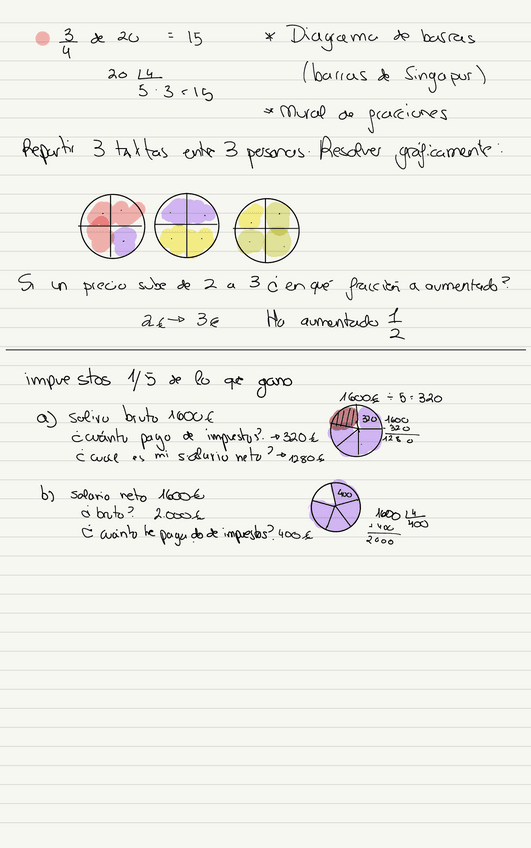 3/4 de 20 = 15
* Diagrama de barras
(barras de Singapur)
20 |4
5 · 3 = 15
* Mural de fracciones
Repartir 3 entre 3 personas. Resolver gráficamente:
Si un precio sube de 2 a 3 ¿en qué fracción a aumentado?
2€ → 3€ Ha aumentado 1/2
impuestos 1/5 de lo que gano
1600€ ÷ 5 = 320
a) bruto 1600€
¿cuánto pago de impuestos? → 320€
¿cual es mi salario neto? → 1280€
320
1600
- 320
1280
b) salario neto 1600€
¿bruto? 2.000€
¿cuánto he pagado de impuestos? 400€
400
1600 |4
400
+ 400
2000